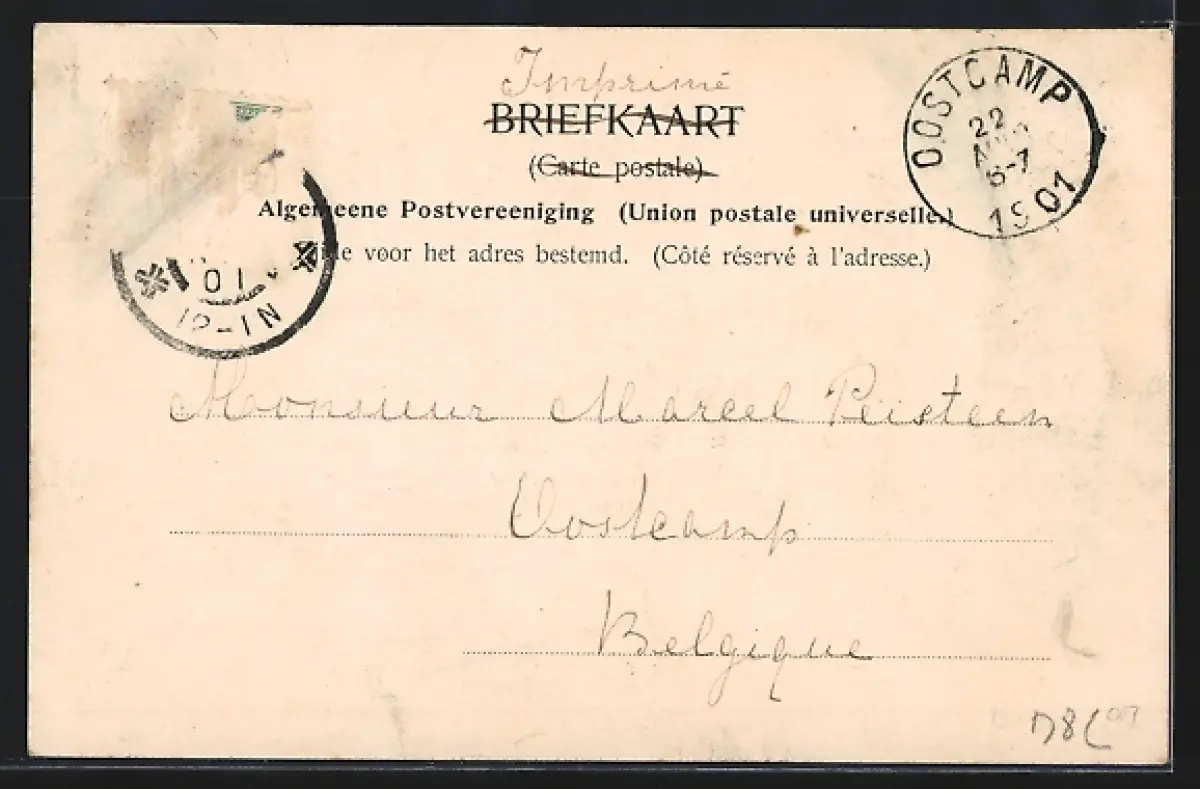 Imprimé
BRIEFKAART
(Carte postale)
Algemeene Postvereeniging (Union postale universelle.)
voor het adres bestemd. (Côté réservé à l'adresse.)
OOSTCAMP
22
6-7
1901
01
12-1N
Monsieur Marcel
Oostcamp
Belgique